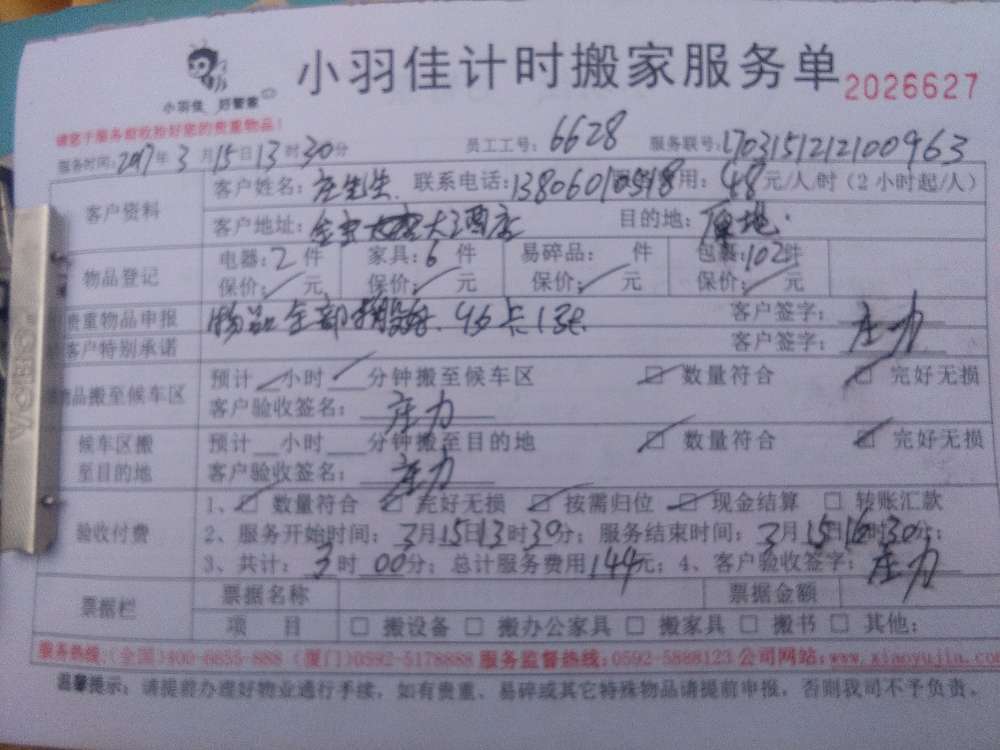 小羽佳计时搬家服务单 2026627
小羽佳 好管家
请您于服务前收拾好您的贵重物品！
服务时间：2017年3月15日13时30分 员工工号：6628 服务联号：L703151212100963
客户资料 客户姓名：庄先生 联系电话：13806010518 用：48元/人/时（2小时起/人）
客户地址：金宝大酒店 目的地：原地
物品登记 电器：2件 家具：6件 易碎品： 件 包裹：102件
保价： 元 保价： 元 保价： 元 保价： 元
贵重物品申报 物品全部 客户签字：庄力
客户特别承诺 客户签字：
物品搬至候车区 预计 小时 分钟搬至候车区 □ 数量符合 □ 完好无损
客户验收签名：庄力
候车区搬至目的地 预计 小时 分钟搬至目的地 □ 数量符合 □ 完好无损
客户验收签名：庄力
验收付费 1、□ 数量符合 □ 完好无损 □ 按需归位 □ 现金结算 □ 转账汇款
2、服务开始时间：3月15日13时30分；服务结束时间：3月15日16时30分；
3、共计：3时00分；总计服务费用144元；4、客户验收签字：庄力
票据栏 票据名称 票据金额
项 目 □ 搬设备 □ 搬办公家具 □ 搬家具 □ 搬书 □ 其他：
服务热线：(全国)400-6655-888 (厦门)0592-5178888 服务监督热线：0592-5888123 公司网站：www.xiaoyujia.com
温馨提示：请提前办理好物业通行手续，如有贵重、易碎或其它特殊物品请提前申报，否则我司不予负责。